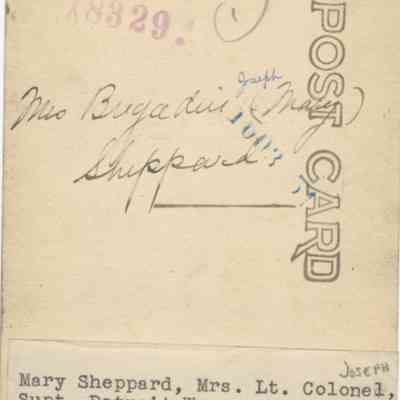 18329.
POST CARD
Joseph
Mrs Brigadier (Mary)
Sheppard
1603
JOSEPH
Mary Sheppard, Mrs. Lt. Colonel,
Supt. Detroit